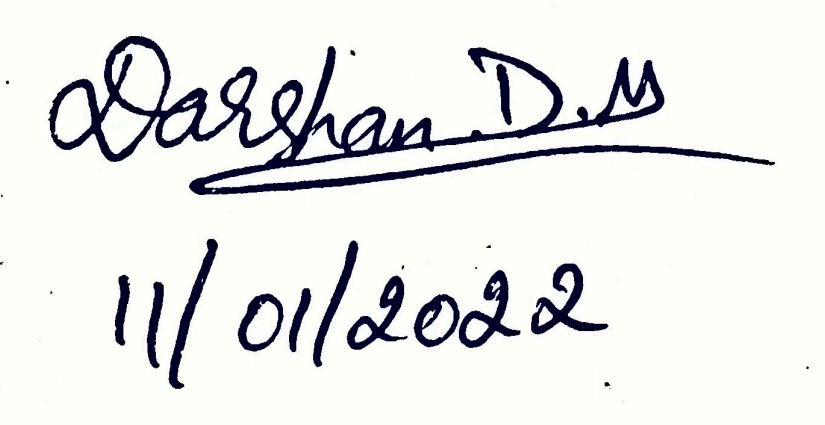 Darshan.D.M
11/01/2022